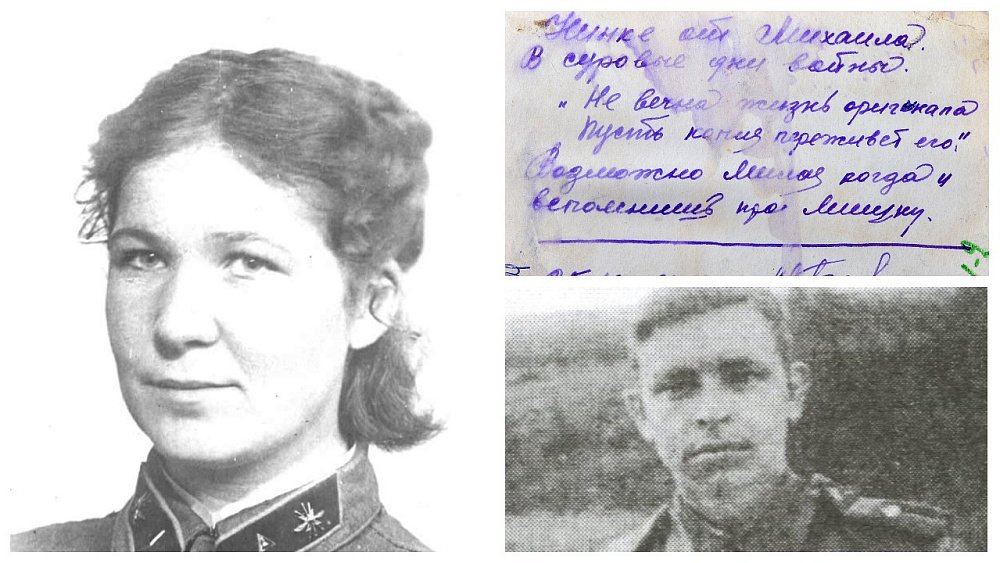 Нинке от Михаила.
В суровые дни войны.
„Не вечна жизнь оригинала
Пусть копия переживет его."
Возможно Милая когда и
вспомнишь про Мишку.